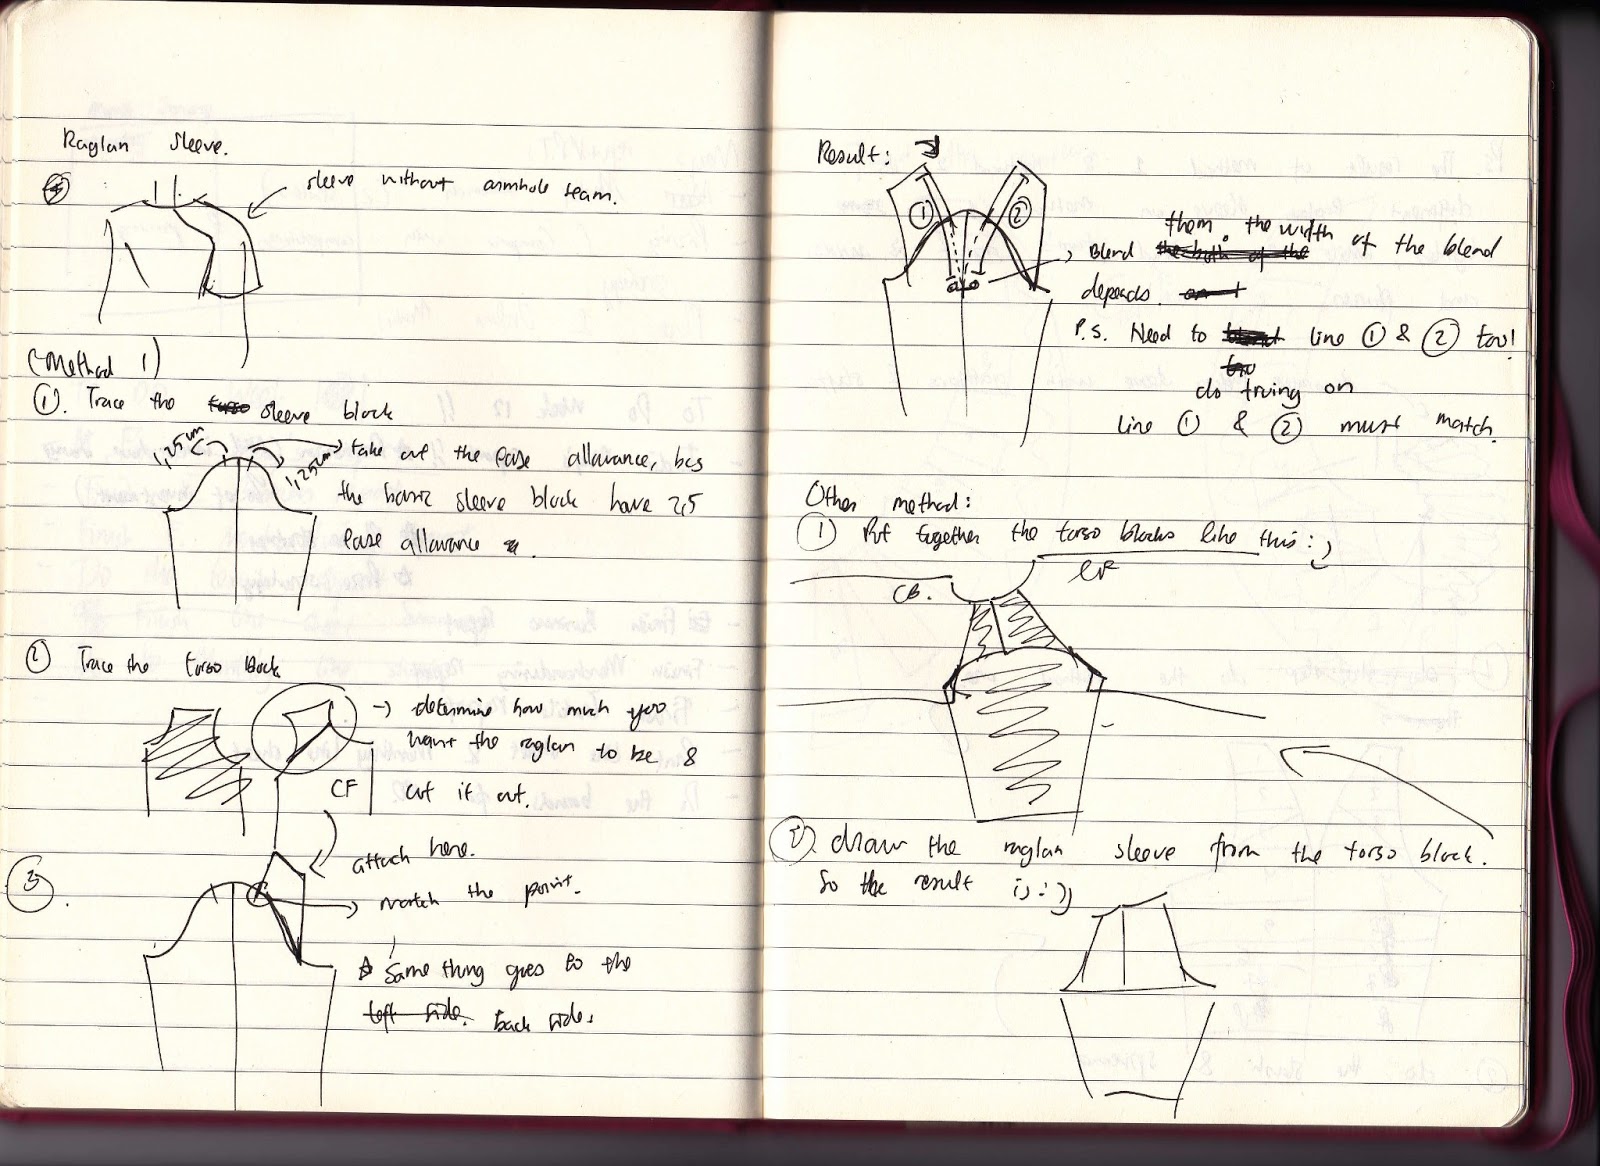 Raglan Sleeve.
sleeve without armhole seam.
(Method 1)
①. Trace the sleeve block
1,25cm
1,25cm
take out the ease allowance, bcs
the basic sleeve block have 2,5
ease allowance
② Trace the torso block
→ determine how much you
want the raglan to be &
cut it out.
CF
③.
attach here.
match the point.
☆ Same thing goes to the
left side. back side.
Result:
① ②
Blend the both of the them. the width of the blend
depends.
P.S. Need to blend line ① & ② too!
do trying on
line ① & ② must match.
Other method:
① Put together the torso blocks like this:
CB.
CF
②. draw the raglan sleeve from the torso block.
So the result is: